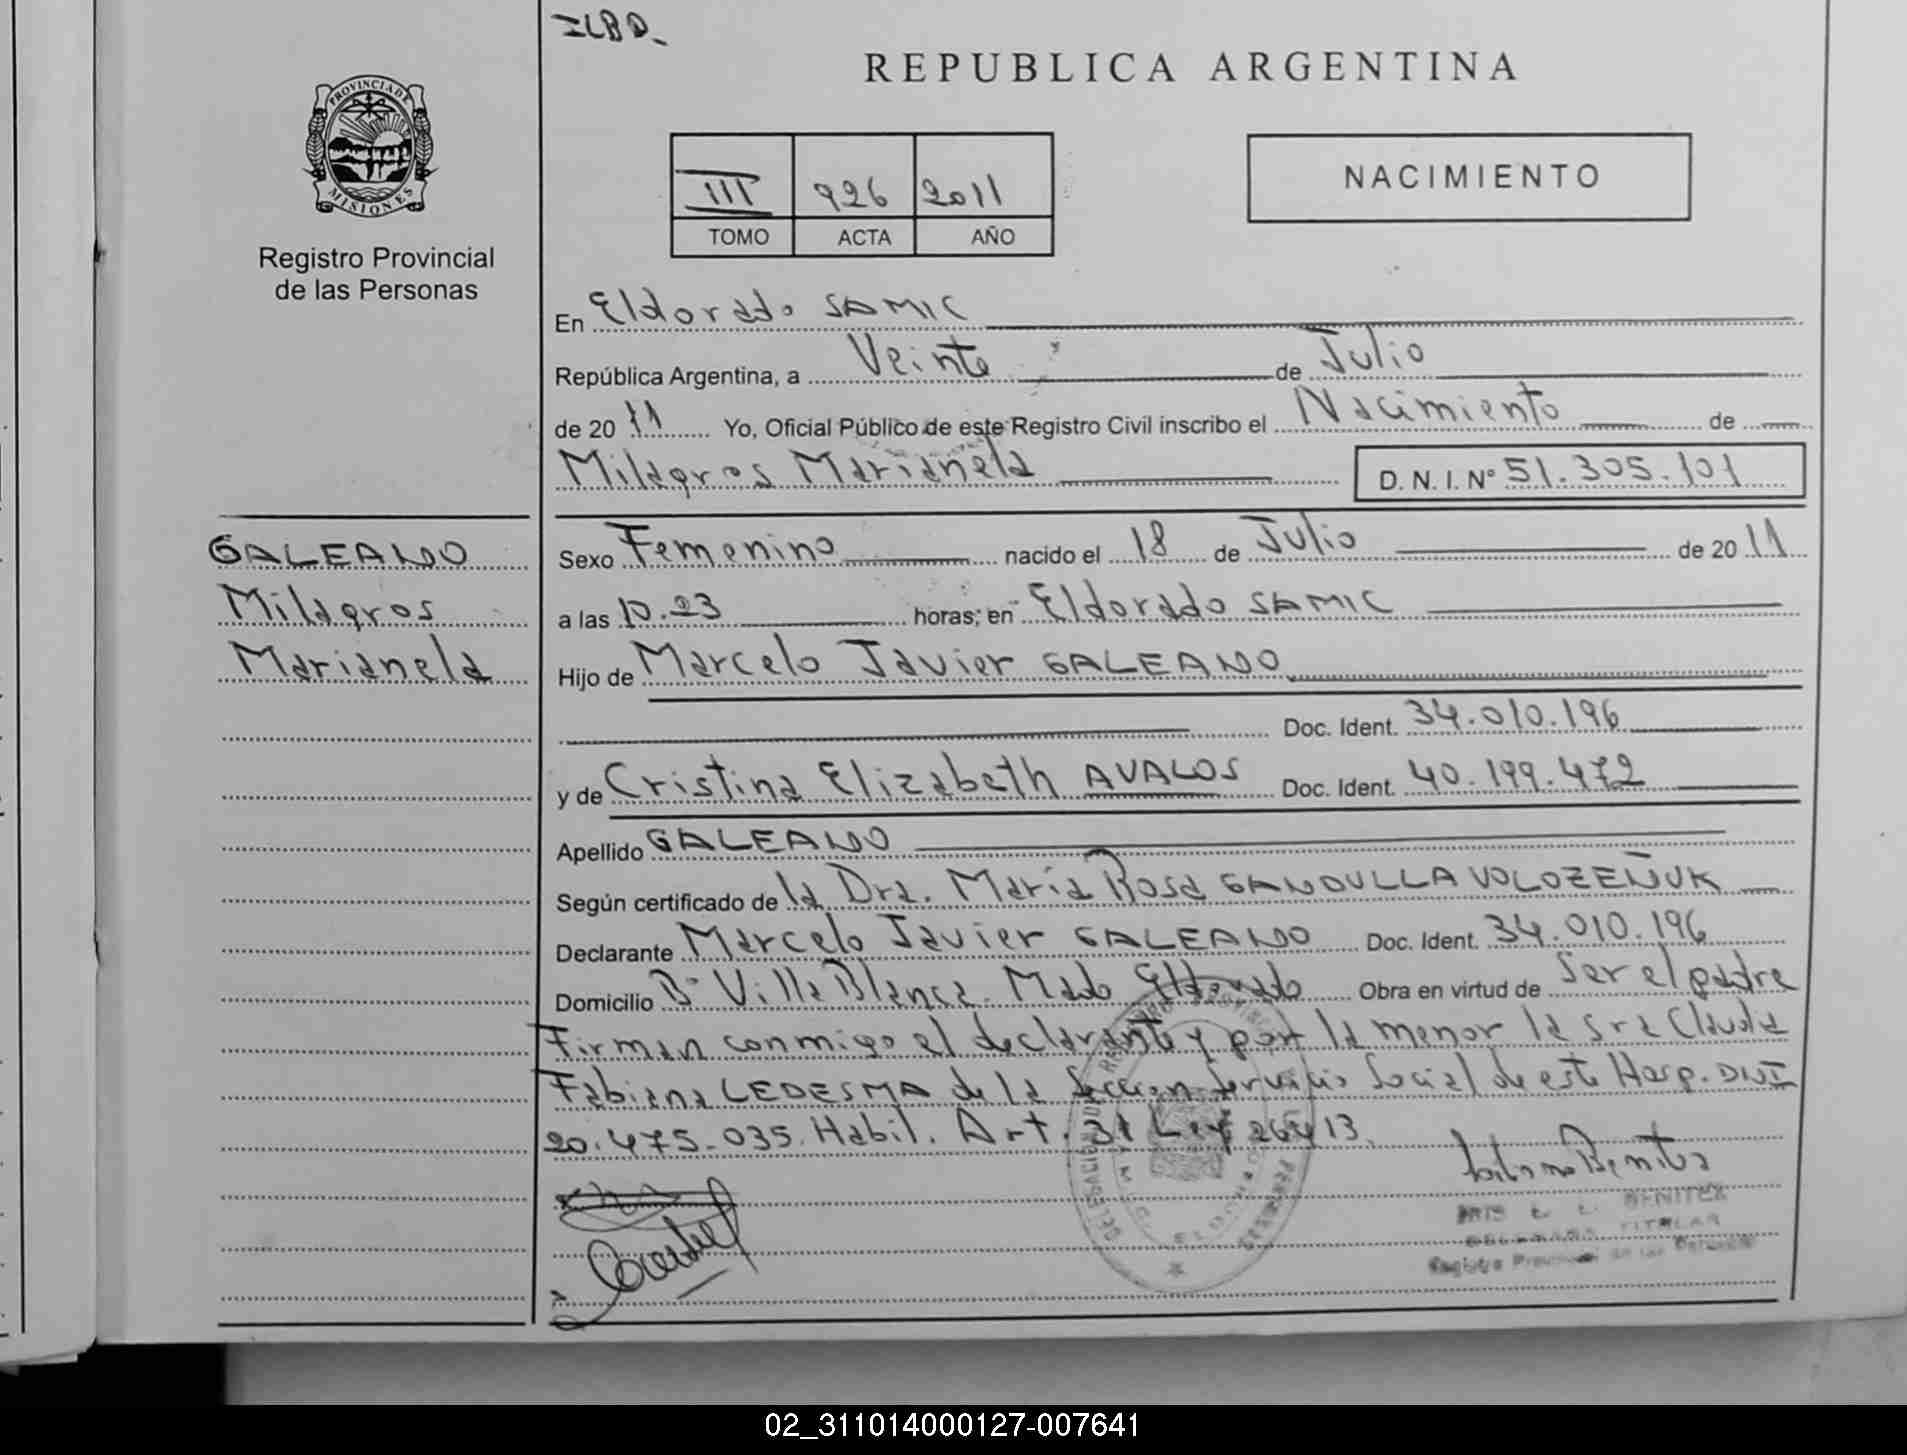 ILBD_
REPUBLICA ARGENTINA
PROVINCIA DE
MISIONES
Registro Provincial
de las Personas
III 926 2011
TOMO ACTA AÑO
NACIMIENTO
En Eldorado SAMIC
República Argentina, a Veinte de Julio
de 20 11 Yo, Oficial Público de este Registro Civil inscribo el Nacimiento de
Milagros Marianela D. N. I. Nº 51.305.101
GALEANO
Milagros
Marianela
Sexo Femenino nacido el 18 de Julio de 20 11
a las 10.23 horas; en Eldorado SAMIC
Hijo de Marcelo Javier GALEANO
Doc. Ident. 34.010.196
y de Cristina Elizabeth AVALOS Doc. Ident. 40.199.472
Apellido GALEANO
Según certificado de la Dra. María Rosa GANDULLA VOLOZEÑUK
Declarante Marcelo Javier GALEANO Doc. Ident. 34.010.196
Domicilio Bº Villa Blanca. Mado Eldorado Obra en virtud de Ser el padre
Firman conmigo el declarante y por la menor la Sra Claudia
Fabiana LEDESMA de la Seccion Servicio Social de este Hosp. DNI
20.475.035. Habil. Art. 31 Ley 26413.
BENITEZ
TITULAR
Registro Provincial de las Personas
02_311014000127-007641